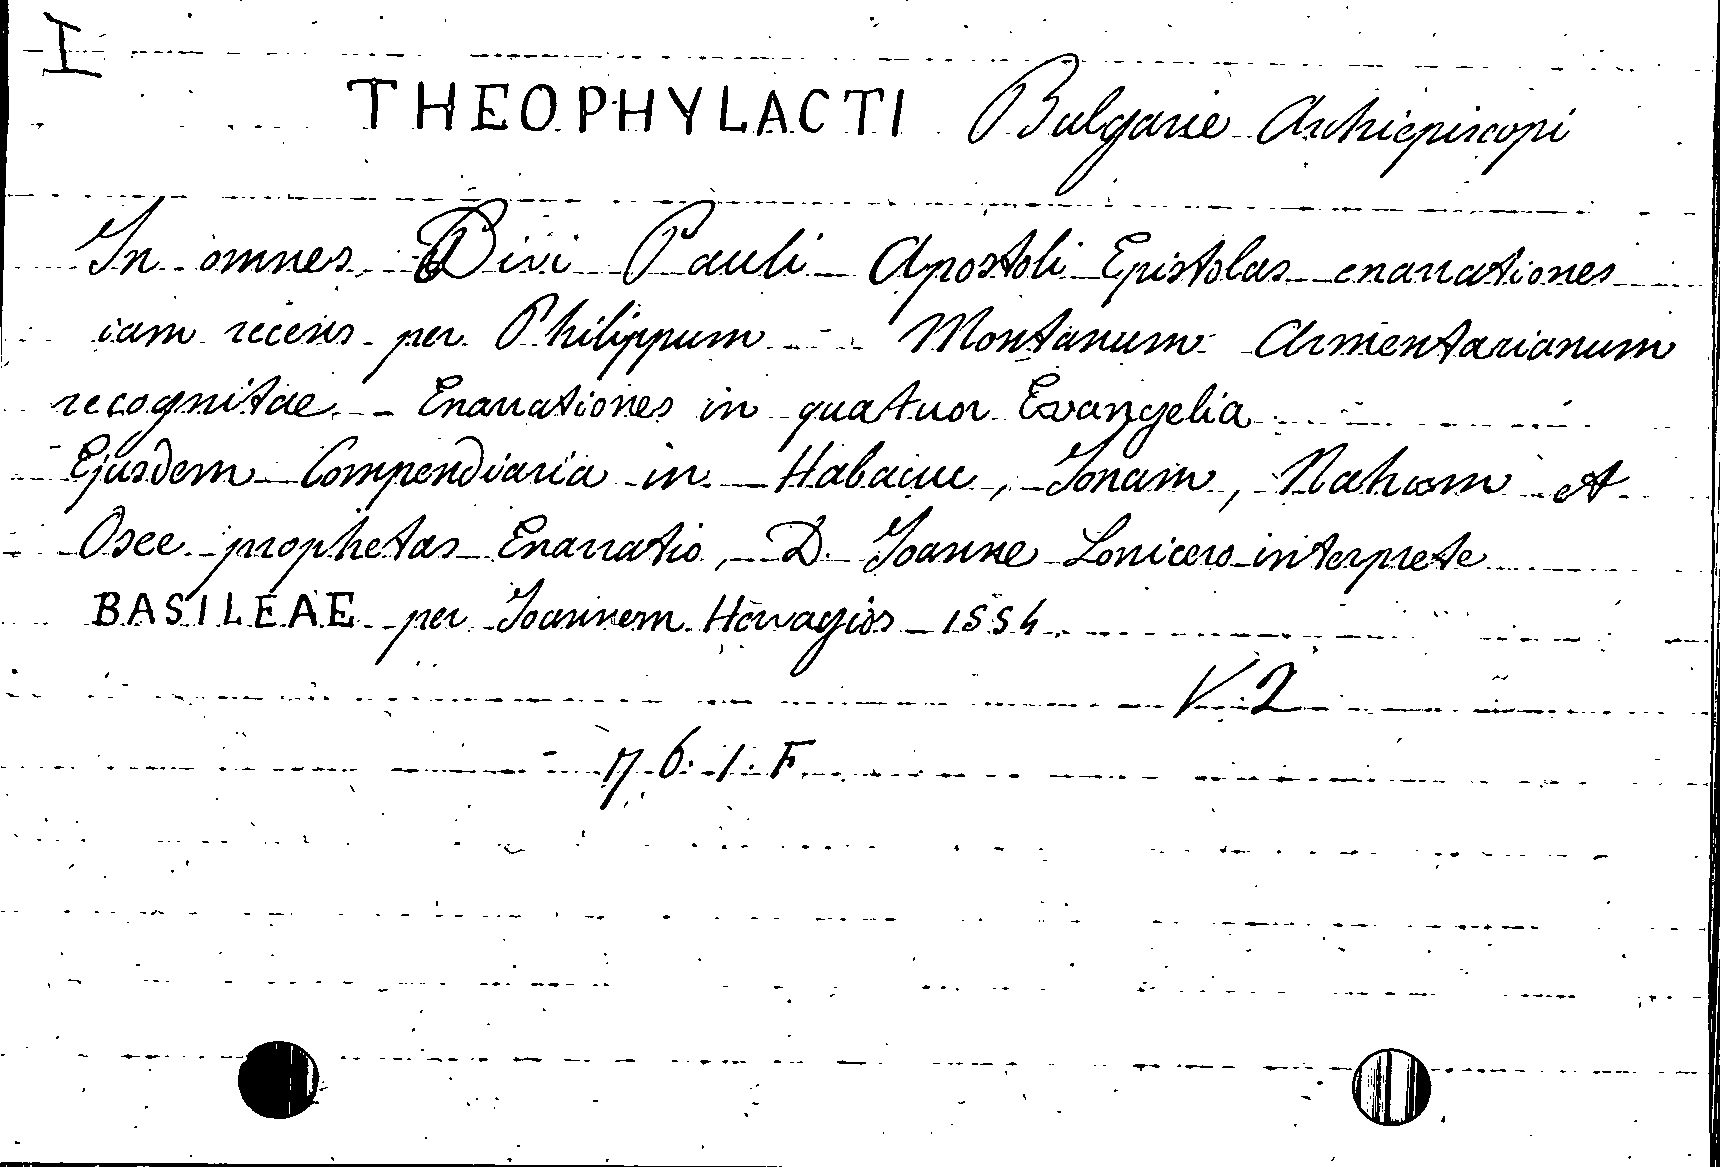 I
THEOPHYLACTI Bulgarie Archiepiscopi
In omnes Divi Pauli Apostoli Epistolas enarrationes
iam recens per Philippum Montanum Armentarianum
recognitae - Enarrationes in quatuor Evangelia
Ejusdem Compendiaria in Habacuc, Jonam, Nahum et
Osee prophetas Enarratio, D. Joanne Lonicero interprete
BASILEAE per Joannem Hervagios 1554
V. 2
17. 6. 1. F